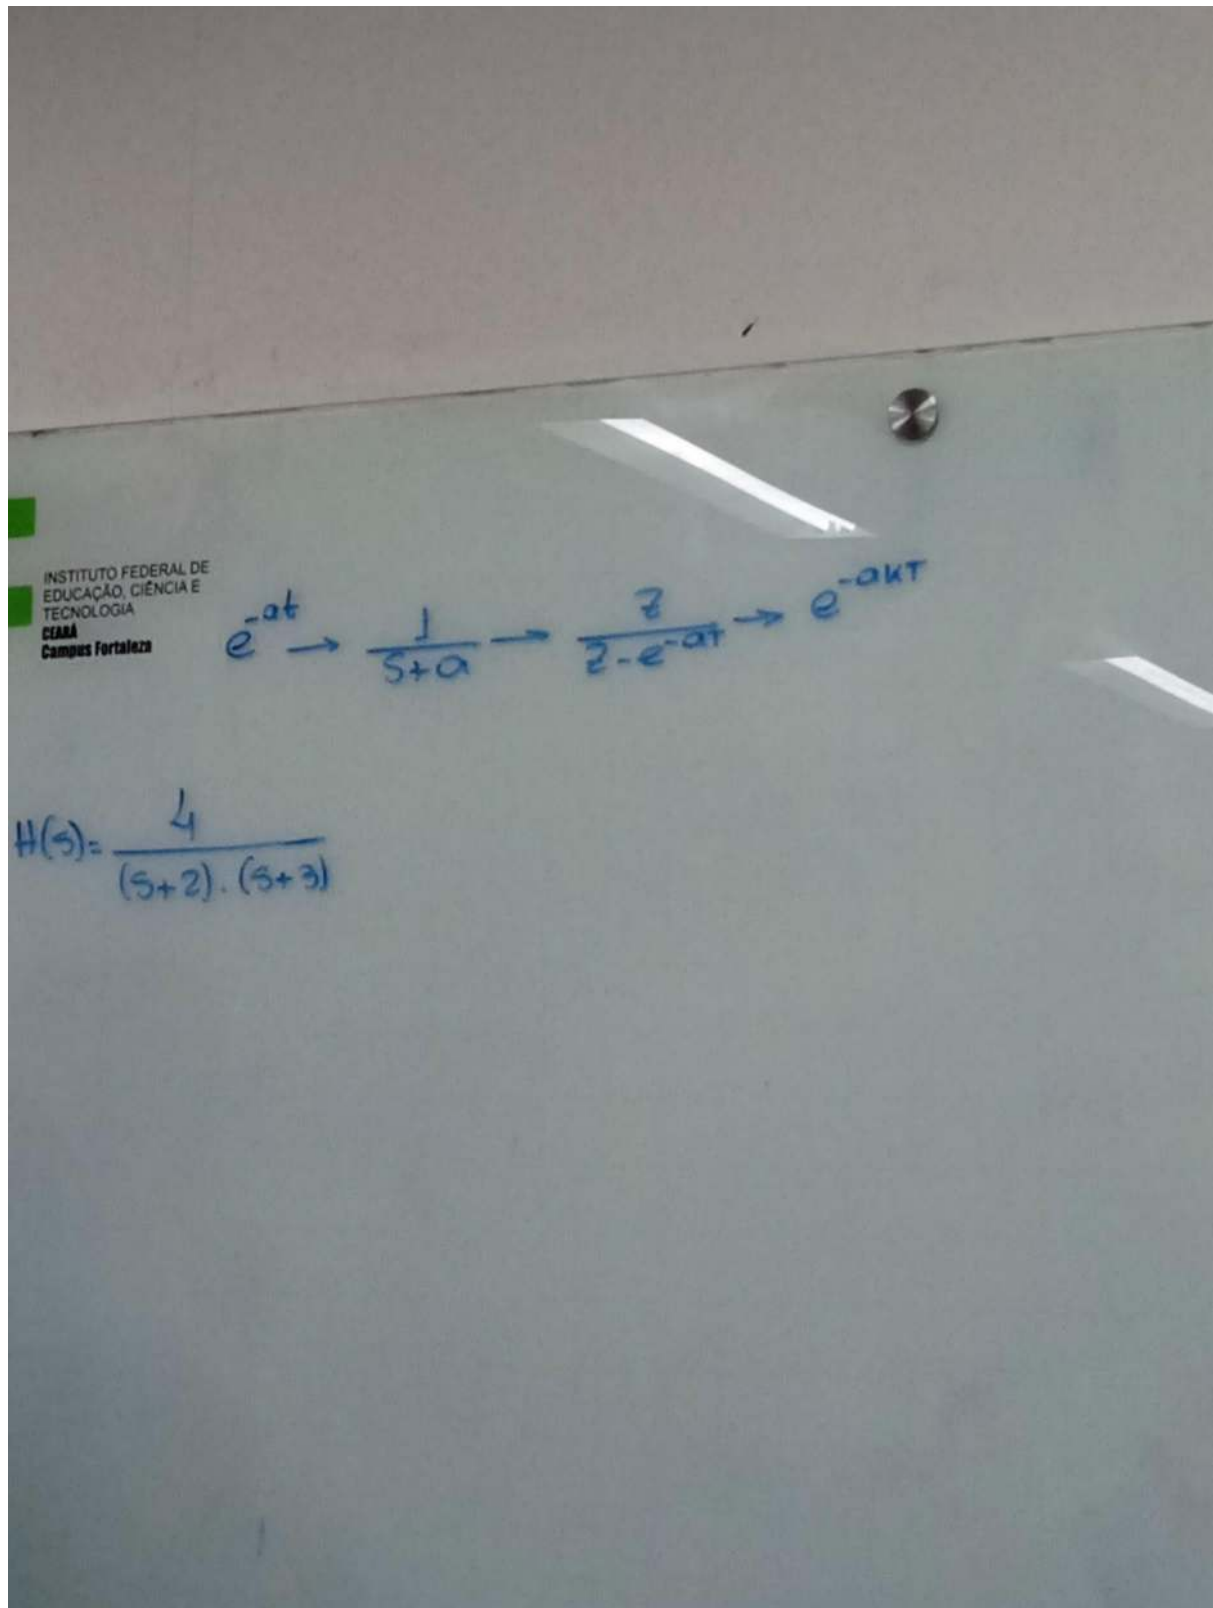 INSTITUTO FEDERAL DE
EDUCAÇÃO, CIÊNCIA E
TECNOLOGIA
CEARÁ
Campus Fortaleza
e^{-at} → \frac{1}{s+a} → \frac{z}{z-e^{-aT}} → e^{-akT}
H(s) = \frac{4}{(s+2).(s+3)}